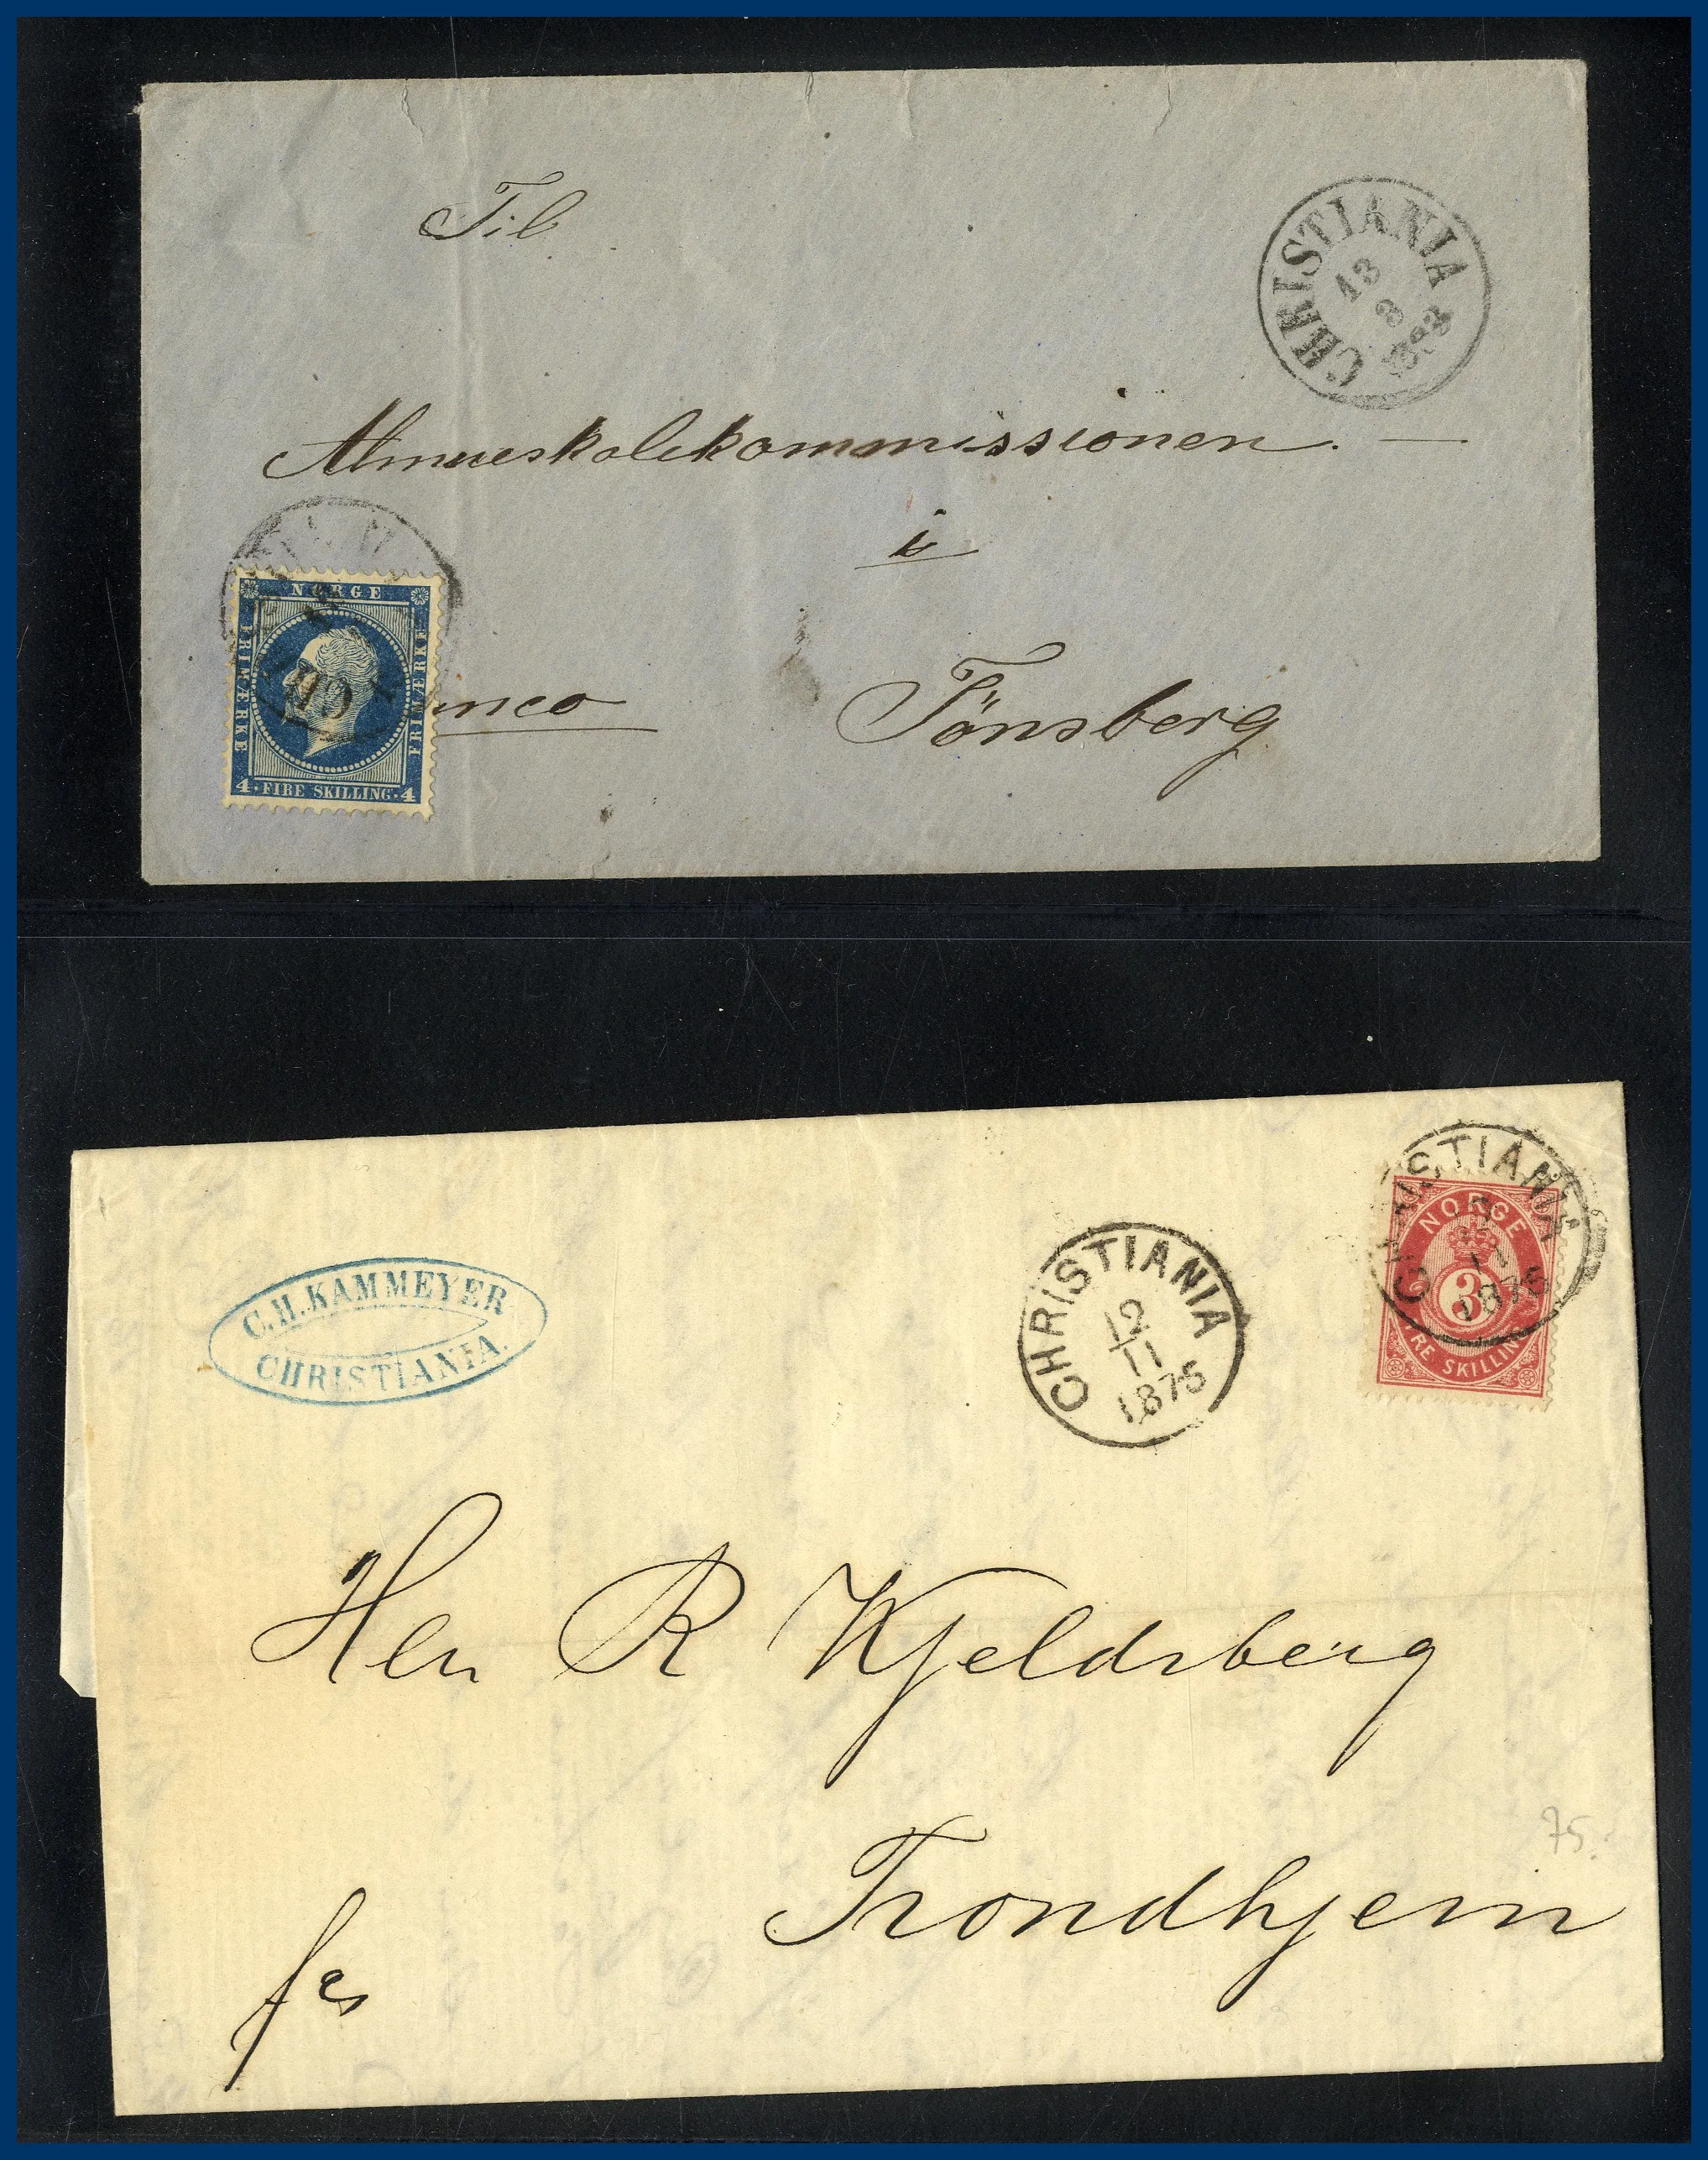 Til
CHRISTIANIA
13
3
1872
Almueskolekommissionen. —
i
NORGE
FRIMÆRKE
FRIMÆRKE
4 · FIRE SKILLING · 4
Tönsberg
C.H. KAMMEYER
CHRISTIANIA.
CHRISTIANIA
12
11
1875
CHRISTIANIA
1875
NORGE
3
TRE SKILLING
Herr R Kjeldsberg
Trondhjem
75.